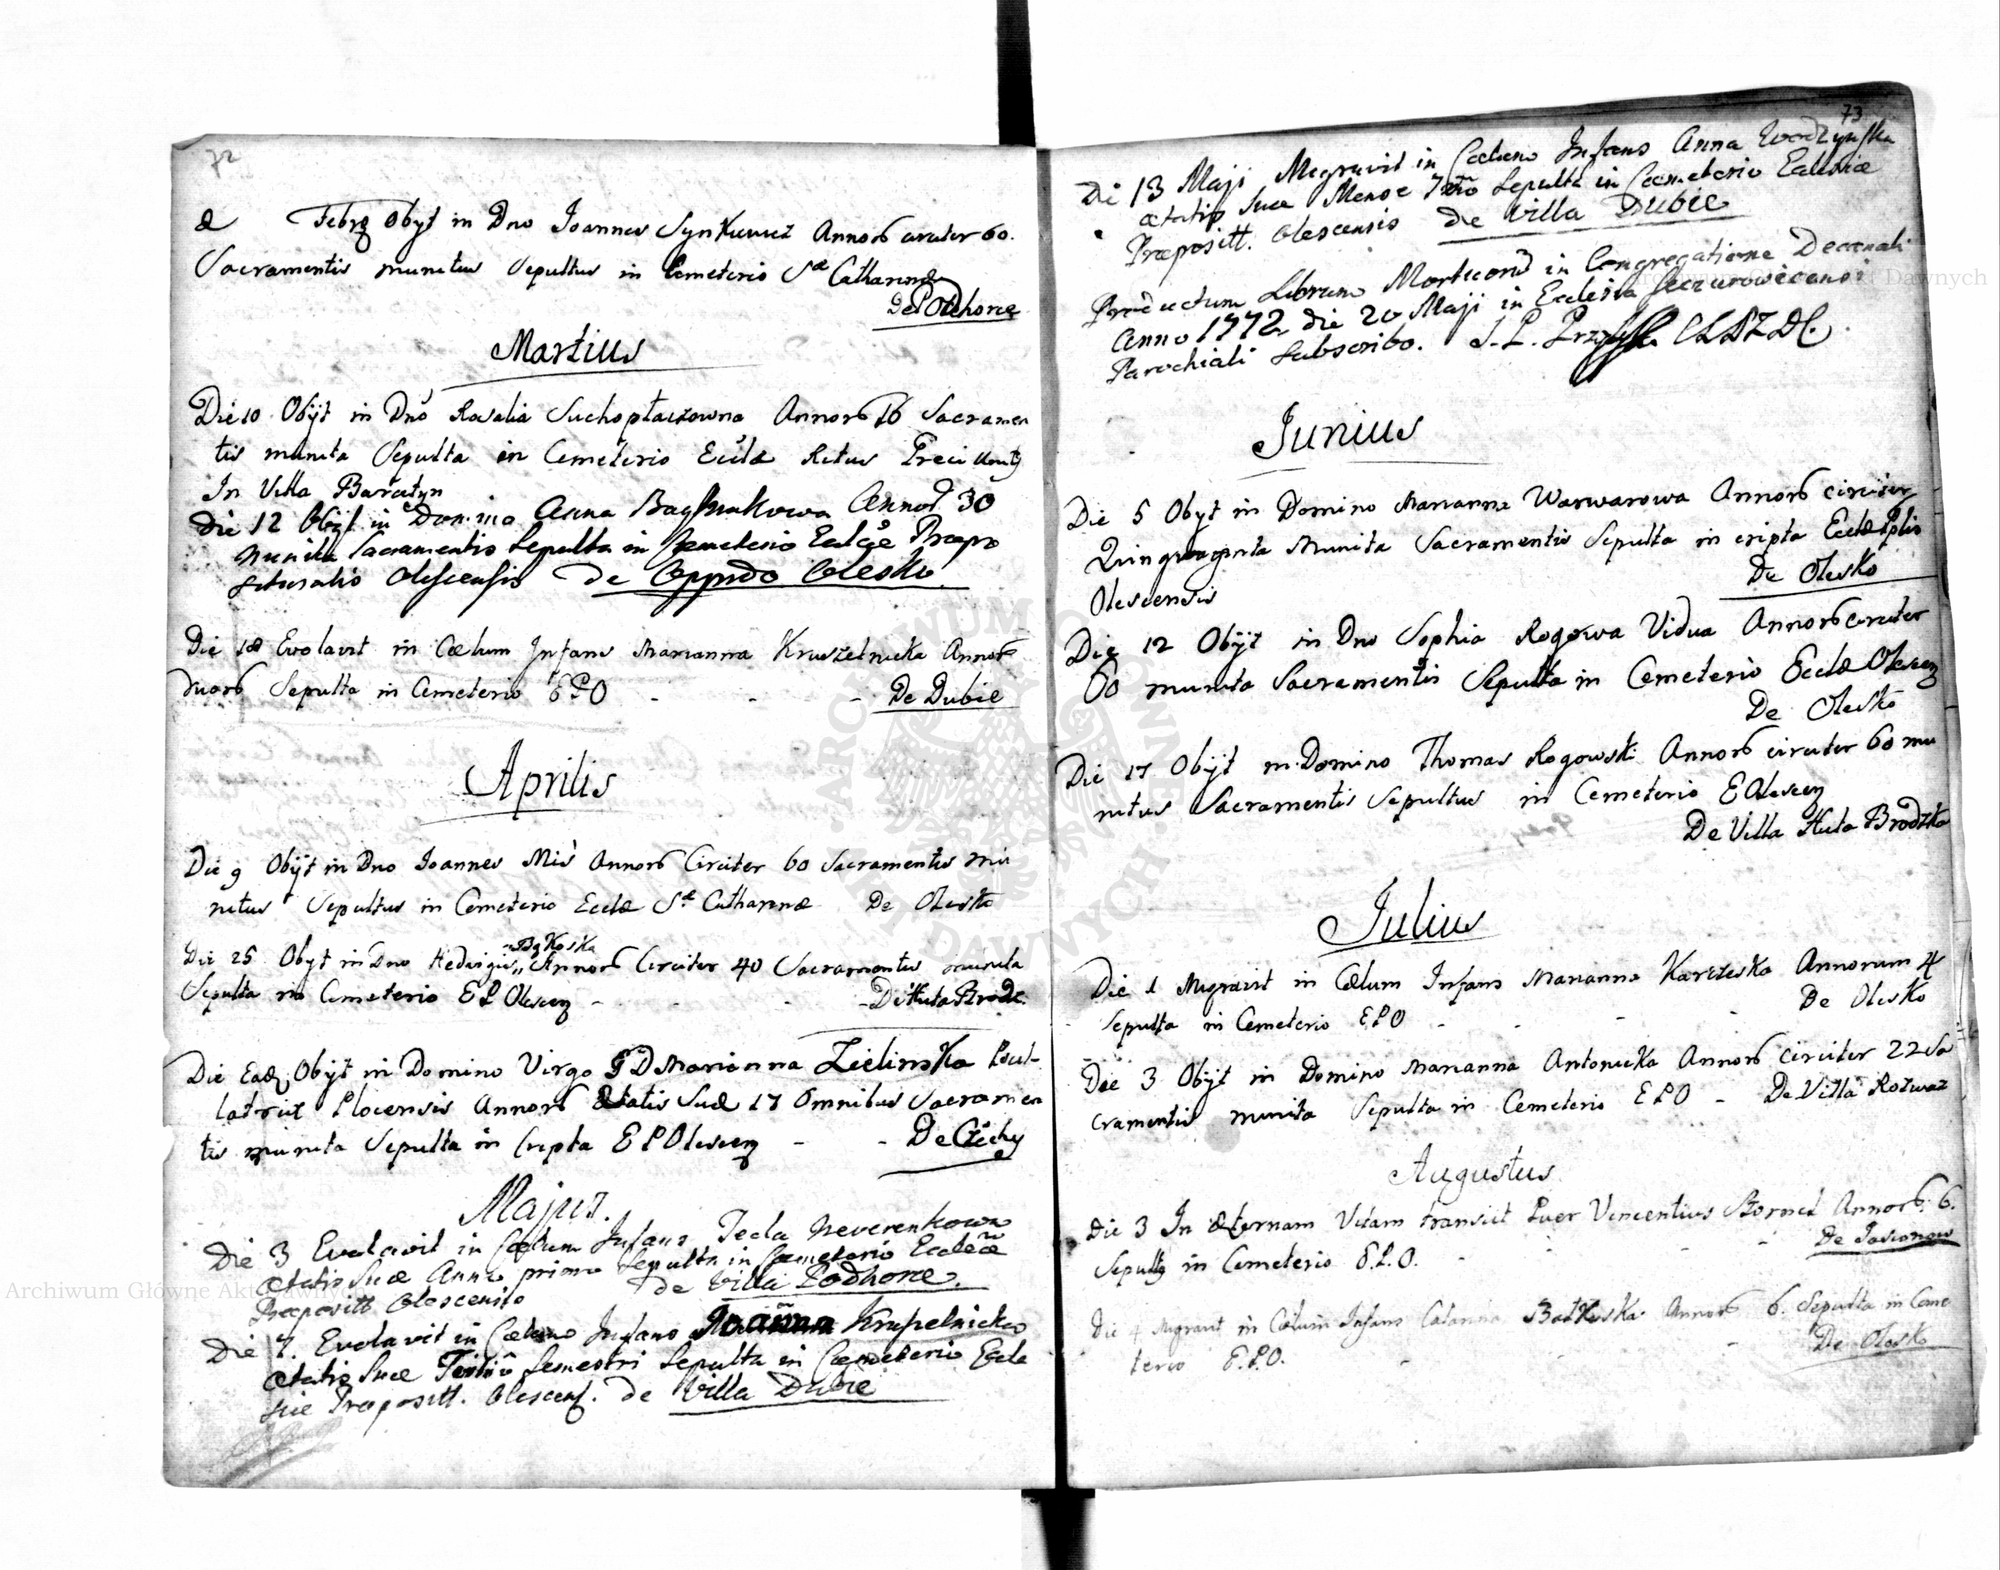 72
Febrz Obyt in Dno Joannes Synkiewicz Annorb circiter 60.
Sacramentis munitus Sepultus in Cemeterio Stæ Catharinæ
De Podhorce
Martius
Die 10 Obijt in Dno Rosalia Suchoptaczowna Annorb 16 Sacramen
tis munita Sepulta in Cemeterio Ecclæ Ritus
In Villa Baratyn
Die 12 Obijt in Domino Anna Annor 30
Munita Sacramentis Sepulta in Cemeterio Præpo
situralis Olescensis De Oppido Olesko
Die 18 Evolavit in Cælum Infans Marianna Kruszelnicka Annor
duorb Sepulta in Cemeterio E P O - - - De Dubie
Aprilis
Die 9 Obijt in Dno Joannes Mis Annorb Circiter 60 Sacramentis mu
nitus Sepultus in Cemeterio Ecclæ Stæ Catharinæ De Olesko
Die 25 Obyt in Dno Hedvigis Annorb Circiter 40 Sacramentis munita
Sepulta in Cemeterio E P Olescen - - - De Huta Brodz.
Die Ead. Obijt in Domino Virgo G D Marianna Zielinska
Plocensis Annorb Ætatis Suæ 17 Omnibus Sacramen
tis munita Sepulta in Cripta E P Olescen - - De Czechy
Majus.
Die 3 Evolavit in Cælum Infans Tecla Neverenkowa
ætatis Suæ Anno primo Sepulta in Cæmeterio Ecclæ
Præpositt. Olescensis de Villa Podhorce.
Die 7. Evolavit in Cælum Infans Joanna Krupelnicka
ætatis Suæ Semestri Sepulta in Cæmeterio Eccle
siæ Præpositt. Olescens. de Villa Dubie
73
Die 13 Maji Migravit in Cælum Infans Anna
ætatis Suæ Mense 7mo Sepulta in Cæmeterio Ecclesiæ
Præpositt. Olescensis de Villa Dubie
Productum Librum Mortuorum in Congregatione Decanali
Anno 1772 die 20 Maji in Ecclesia Szczurowicensi
Parochiali Subscribo.
Junius
Die 5 Obyt in Domino Marianna Warwarowa Annorb circiter
Quinquaginta Munita Sacramentis Sepulta in cripta Ecclæ Pplis
Olescensis De Olesko
Die 12 Obijt in Dno Sophia Rogowa Vidua Annorb circiter
60 munita Sacramentis Sepulta in Cemeterio Ecclæ Olescen
De Olesko
Die 17 Obijt in Domino Thomas Rogowski Annorb circiter 60 mu
nitus Sacramentis Sepultus in Cemeterio E Olescen
De Villa Huta Brodzka
Julius
Die 1 Migravit in Cælum Infans Marianna Karczeska Annorum 4
Sepulta in Cemeterio E P O - - - - De Olesko
Die 3 Obijt in Domino Marianna Antonicka Annorb Circiter 22 Sa
cramentis munita Sepulta in Cemeterio E P O - De Villa Rozwaz
Augustus
Die 3 In Æternam Vitam transiit Puer Vincentius Annorb 6.
Sepultg in Cemeterio E.P.O. - - - - De Jasionow
Die 4 Migravit in Cælum Infans Catarina Annorb 6. Sepulta in Ceme
terio E.P.O. - - - De Olesko
Archiwum Główne Akt Dawnych
Archiwum Główne Akt Dawnych
ARCHIWUM GŁÓWNE AKT DAWNYCH